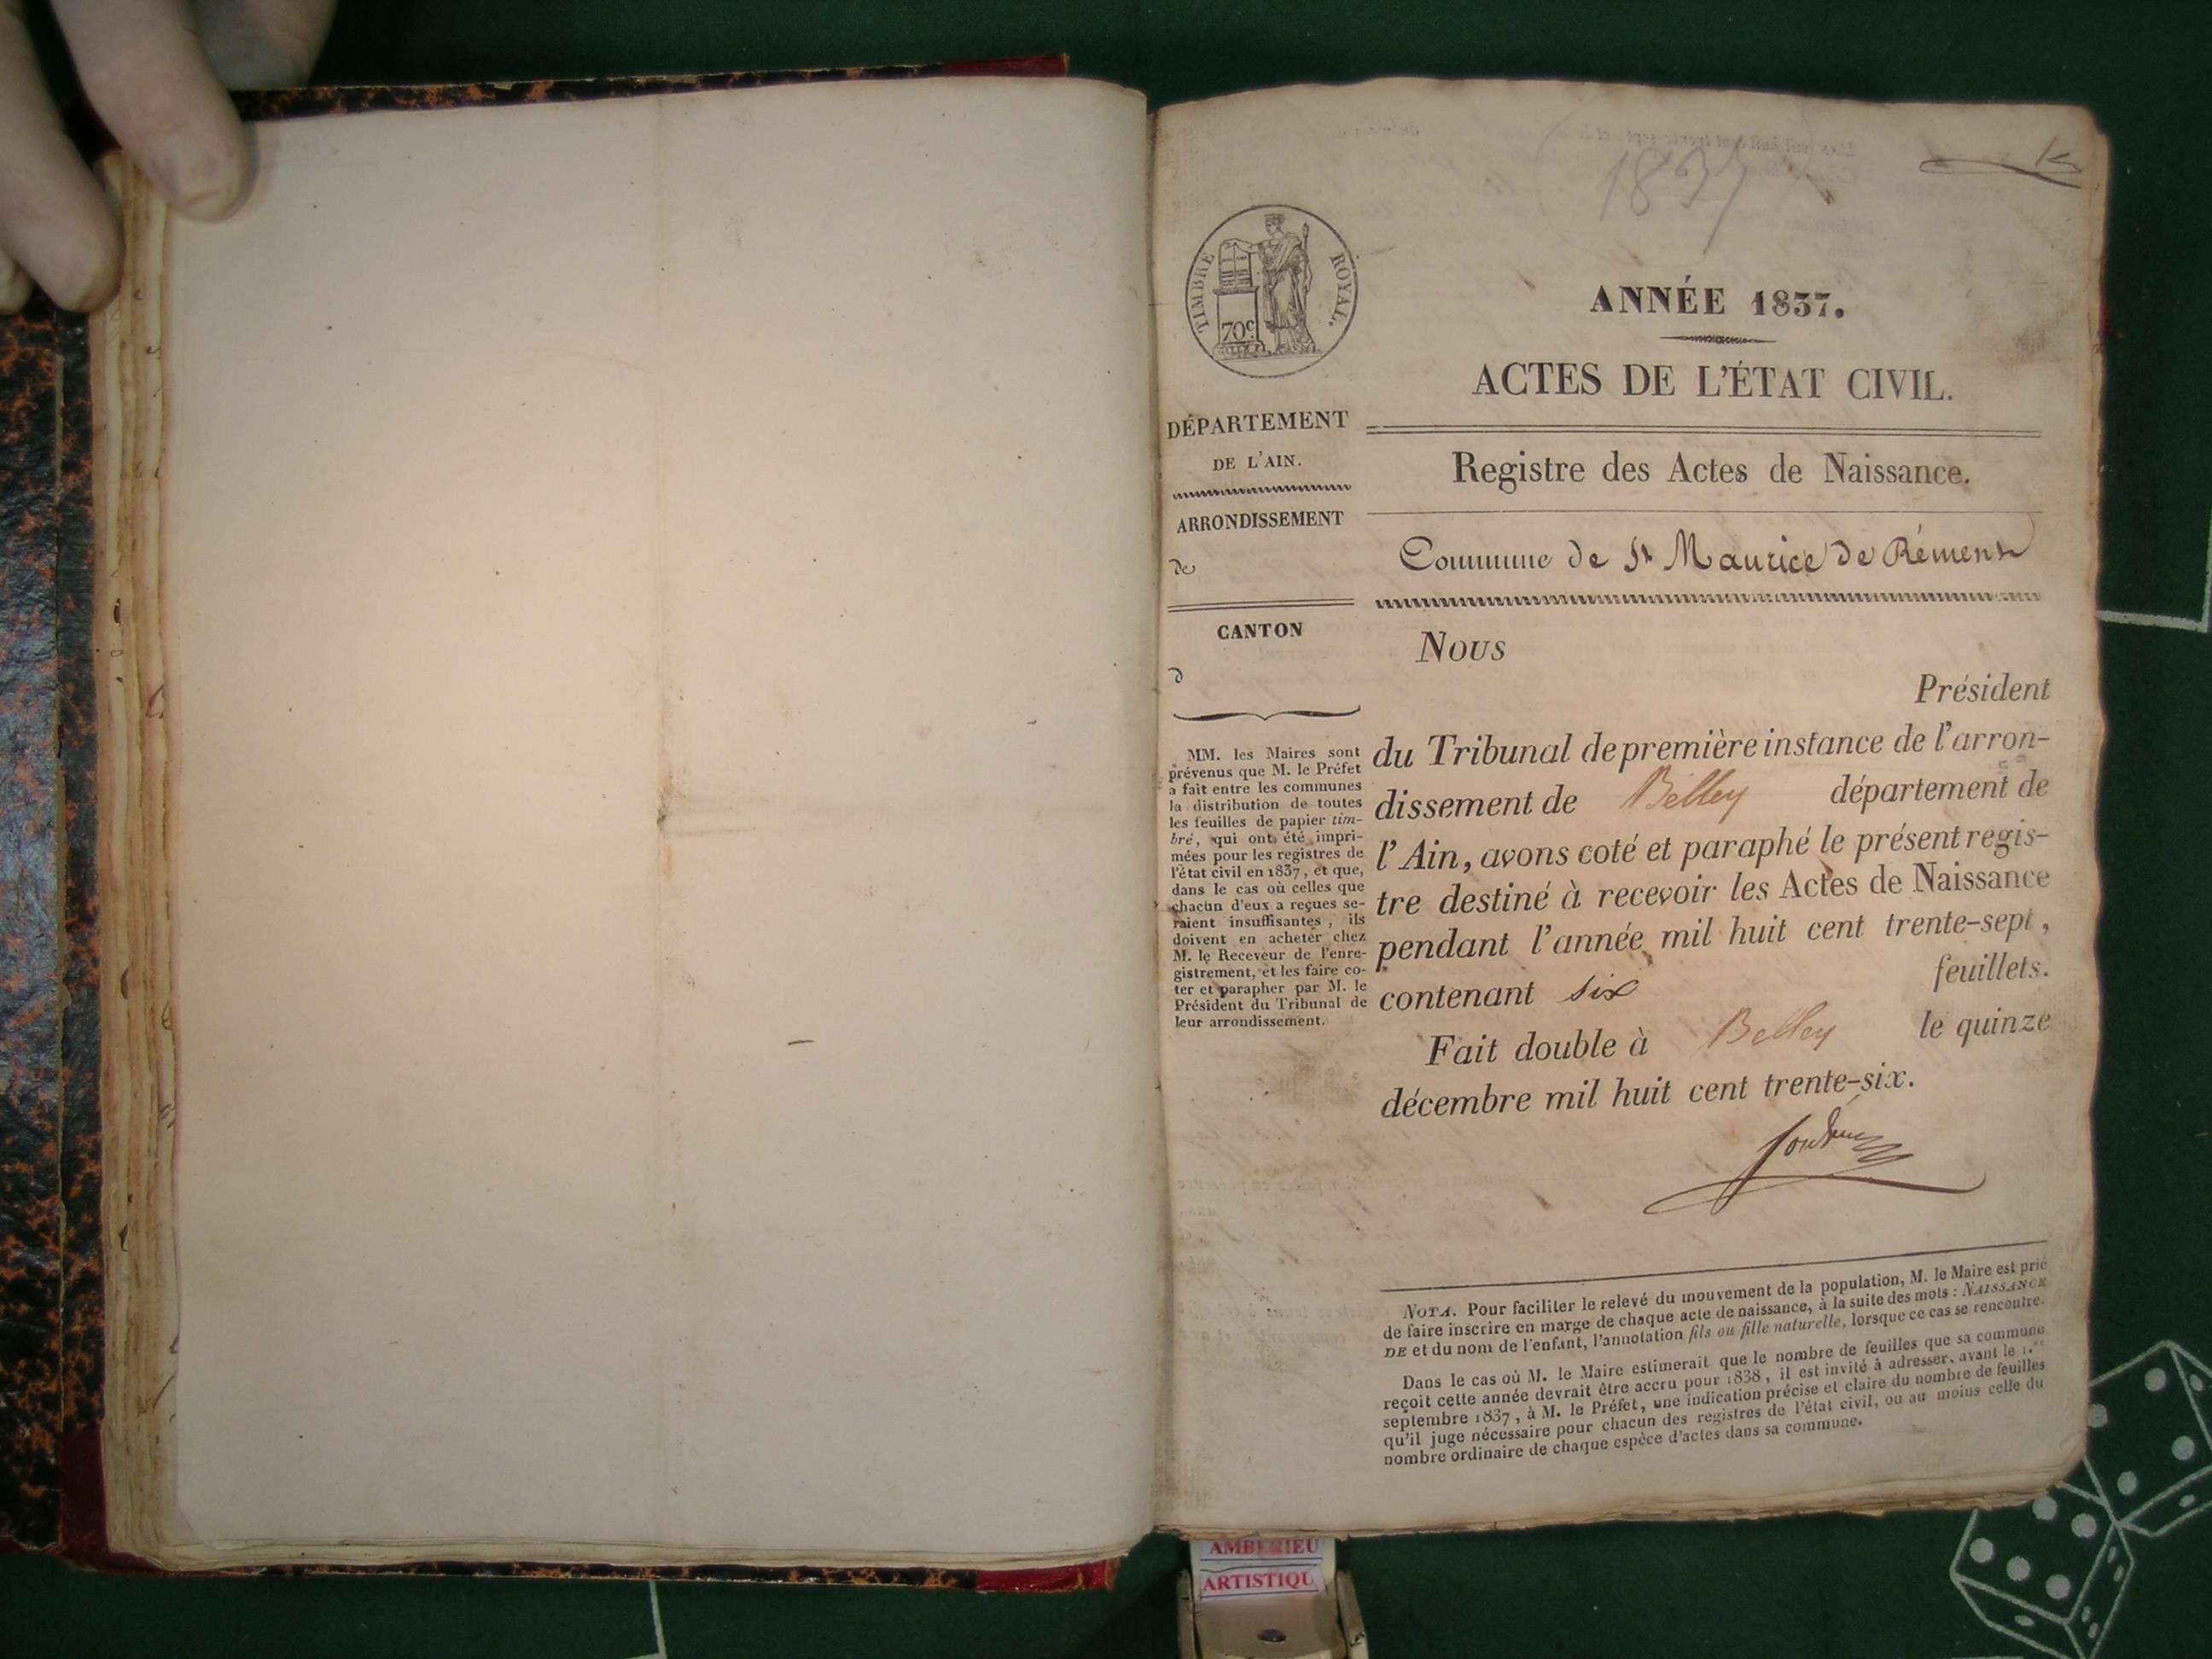 1837
TIMBRE ROYAL.
70c
ANNÉE 1837.
ACTES DE L'ÉTAT CIVIL.
DÉPARTEMENT
DE L'AIN.
ARRONDISSEMENT
de
CANTON
d
MM. les Maires sont
prévenus que M. le Préfet
a fait entre les communes
la distribution de toutes
les feuilles de papier tim-
bré, qui ont été impri-
mées pour les registres de
l'état civil en 1837, et que,
dans le cas où celles que
chacun d'eux a reçues se-
raient insuffisantes, ils
doivent en acheter chez
M. le Receveur de l'enre-
gistrement, et les faire co-
ter et parapher par M. le
Président du Tribunal de
leur arrondissement.
Registre des Actes de Naissance.
Commune de St Maurice de Rémens
Nous
Président
du Tribunal de première instance de l'arron-
dissement de Belley département de
l'Ain, avons coté et paraphé le présent regis-
tre destiné à recevoir les Actes de Naissance
pendant l'année mil huit cent trente-sept,
contenant six feuillets.
Fait double à Belley le quinze
décembre mil huit cent trente-six.
NOTA. Pour faciliter le relevé du mouvement de la population, M. le Maire est prié
de faire inscrire en marge de chaque acte de naissance, à la suite des mots : NAISSANCE
DE et du nom de l'enfant, l'annotation fils ou fille naturelle, lorsque ce cas se rencontre.
Dans le cas où M. le Maire estimerait que le nombre de feuilles que sa commune
reçoit cette année devrait être accru pour 1838, il est invité à adresser, avant le 1.er
septembre 1837, à M. le Préfet, une indication précise et claire du nombre de feuilles
qu'il juge nécessaire pour chacun des registres de l'état civil, ou au moins celle du
nombre ordinaire de chaque espèce d'actes dans sa commune.
AMBERIEU
ARTISTIQU